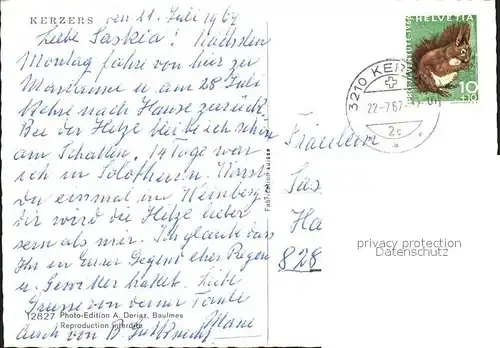 KERZERS den 11. Juli 1967
Liebe Saskia! Nächsten
Montag fahre von hier zu
Marianne u. am 28 Juli
kehre nach Hause zurück.
Bei der Hitze bleibe ich schön
am Schatten. 14 Tage war
ich in Solothurn. Warst
du einmal im Weinberg
dir wird die Hitze lieber
sein als mir. Ich glaube dass
Ihr in Eurer Gegend eher Regen
u. Gewitter hattet. Liebe
Grüsse von deiner Tante
12827 Photo-Edition A. Deriaz, Baulmes
Reproduction interdite
auch von
Fabrication suisse
PRO JUVENTUTE 1966
HELVETIA
10+10
3210 KERZERS
22-7.67-
2c
Fräulein
Sas
Ha
828
privacy protection
Datenschutz